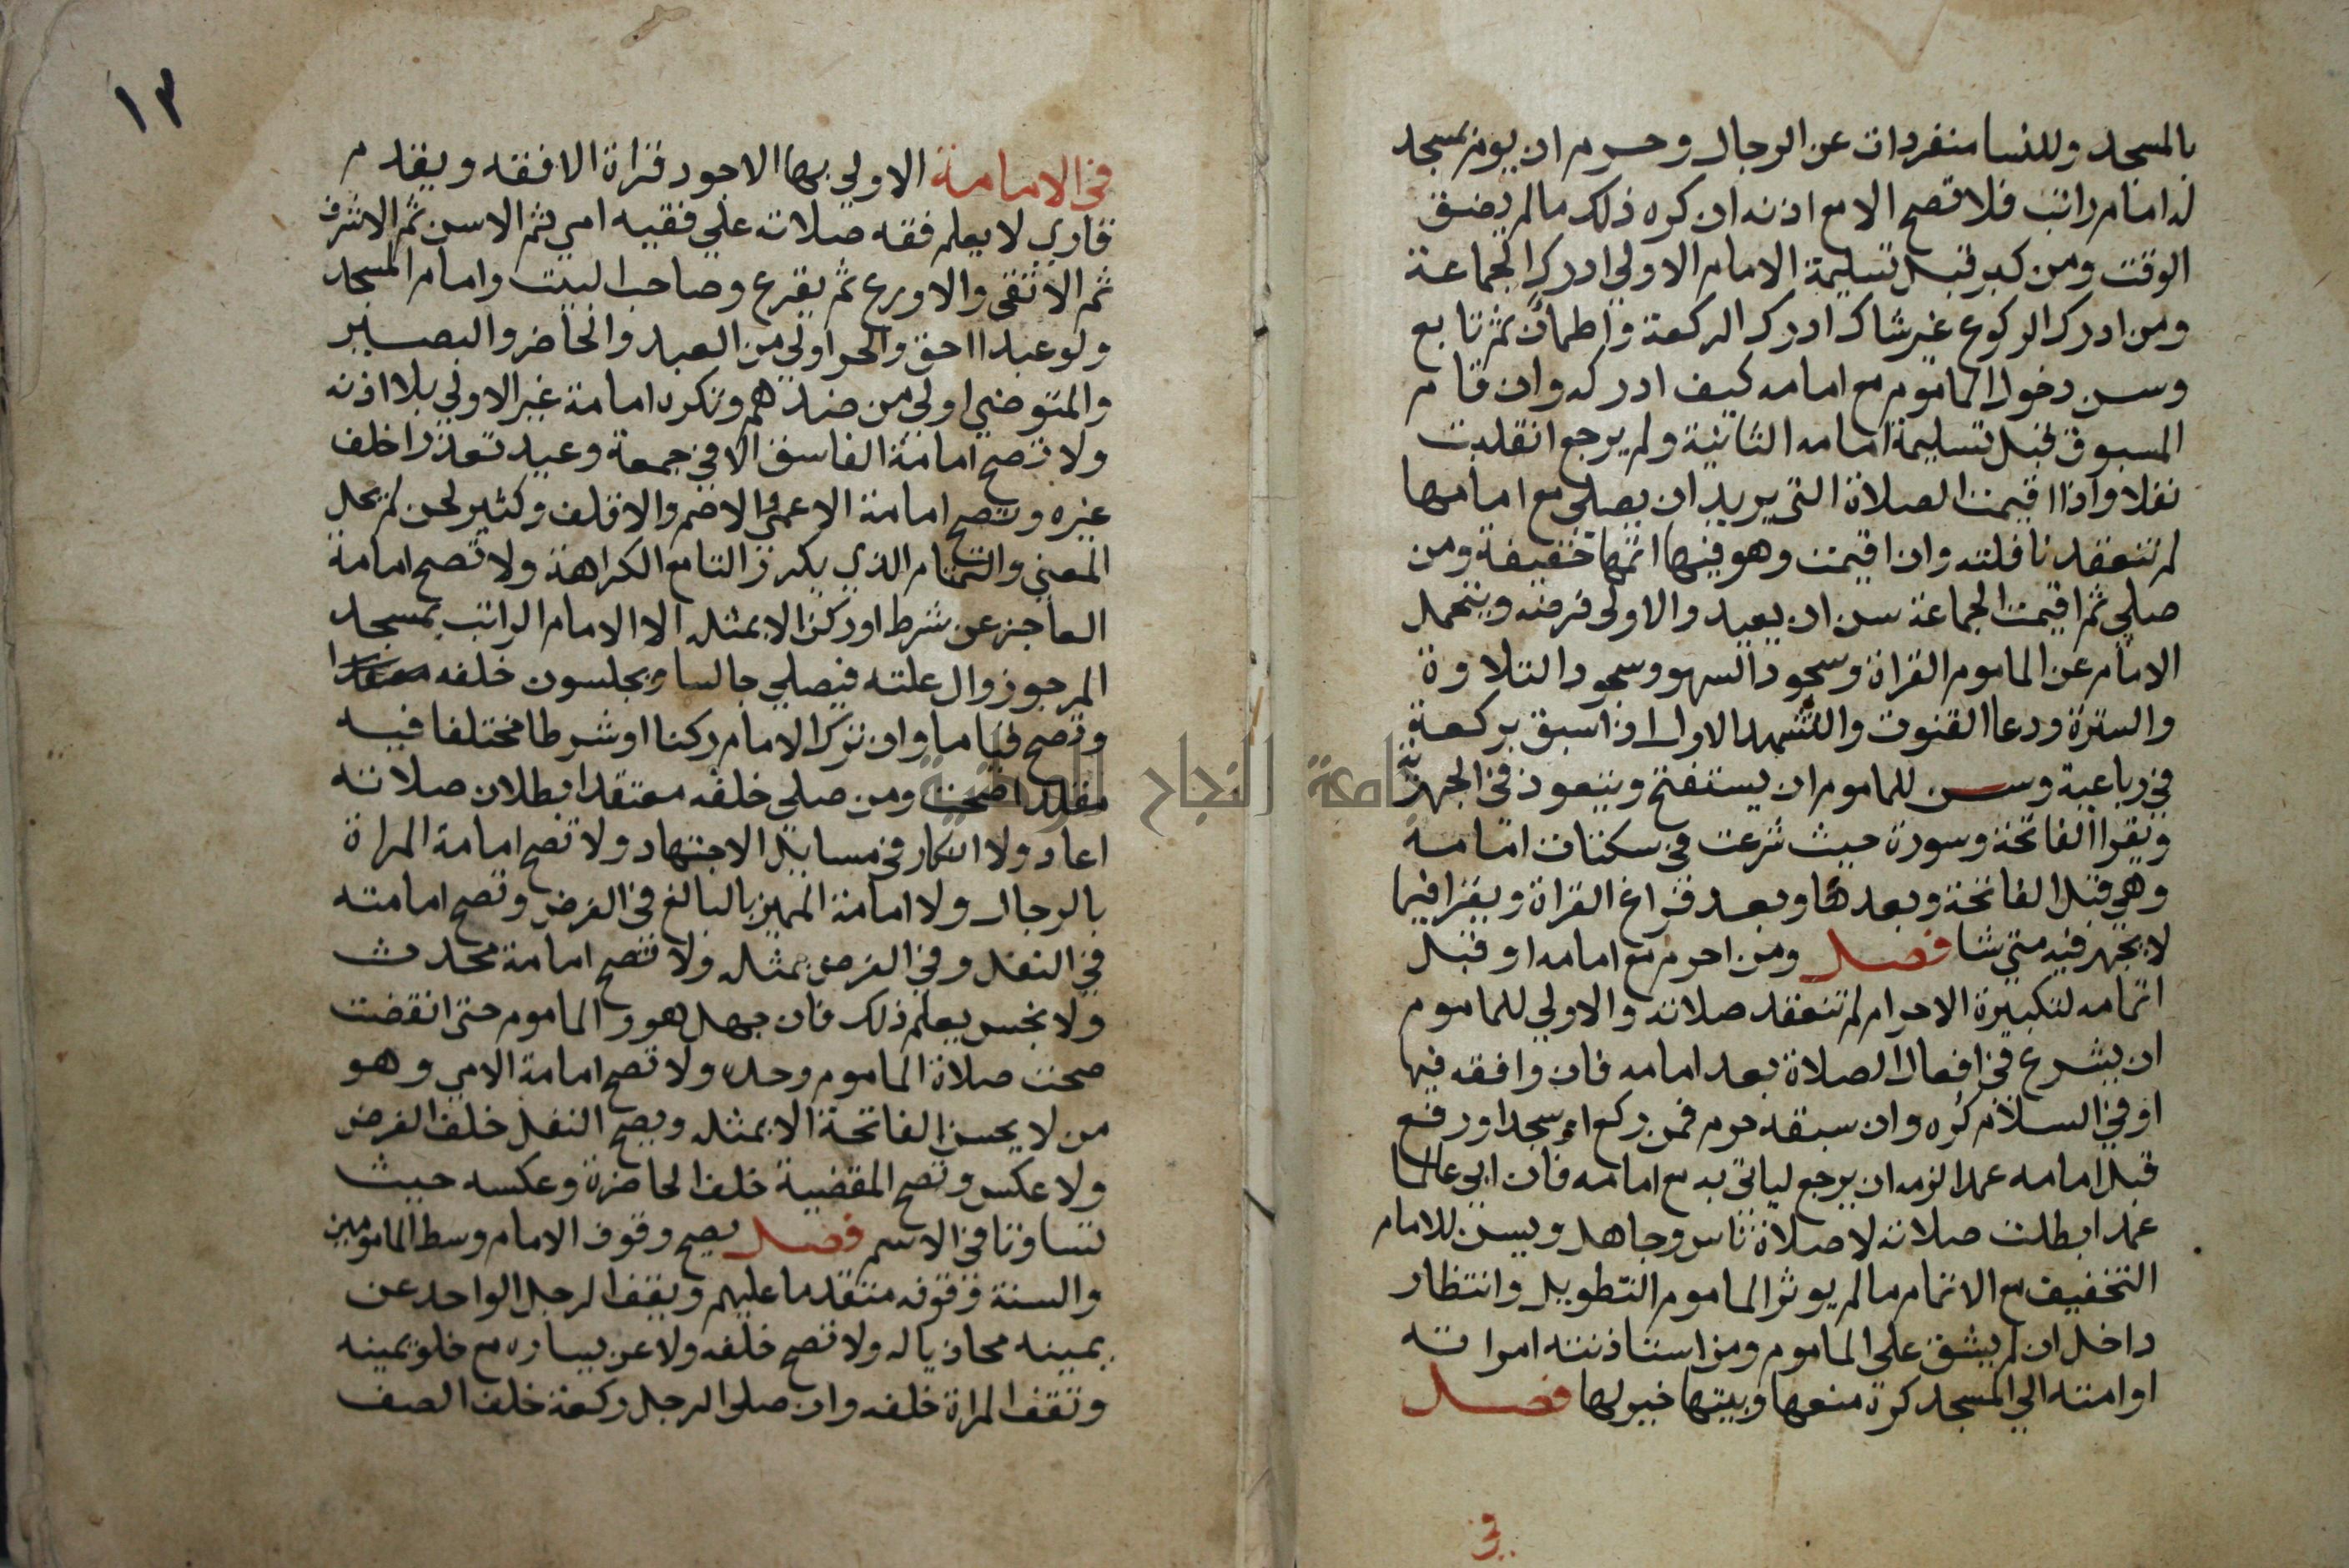 بالمسجد وللنسا منفردات عن الرجال وحرم ان يوم بمسجد
له امام راتب فلا تصح الا مع اذنه ان كره ذلك مالم يضق
الوقت ومن كبر قبل تسليمة الامام الاولي ادرك الجماعة
ومن ادرك الركوع غير شاك ادرك الركعة واطمان ثم تابع
وسن دخول الماموم مع امامه كيف ادركه وان قام
المسبوق قبل تسليمة امامه الثانية ولم يرجع انقلبت
نفلا واذا اقيمت الصلاة التي يريد ان يصلي مع امامها
لم تنعقد نافلته وان اقيمت وهو فيها اتمها خفيفة ومن
صلي ثم اقيمت الجماعة سن ان يعيد والاولى فرضه ويتحمل
الامام عن الماموم القراة وسجود السهو وسجود التلاوة
والسترة ودعا القنوت والتشهد الاول اذا سبق بركعة
في رباعية وسن للماموم ان يستفتح ويتعوذ في الجهرية
ويقرا الفاتحة وسورة حيث شرعت في سكتات امامه
وهي قبل الفاتحة وبعدها وبعد فراغ القراة ويقرا فيما
لا يجهر فيه متي شا فصل ومن احرم مع امامه او قبل
اتمامه لتكبيرة الاحرام لم تنعقد صلاته والاولي للماموم
ان يشرع في افعال الصلاة بعد امامه فان وافقه فيها
او في السلام كره وان سبقه حرم فمن ركع او سجد او رفع
قبل امامه عمدا لزمه ان يرجع لياتي به مع امامه فان ابي عالما
عمدا بطلت صلاته لا صلاة ناس وجاهل ويسن للامام
التخفيف مع الاتمام مالم يوثر الماموم التطويل وانتظار
داخل ان لم يشق علي الماموم ومن استاذنته امراته
او امته الي المسجد كره منعها وبيتها خير لها فصل
في
١٣
في الامامة الاولي بها الاجود قراة الافقه ويقدم
قاري لا يعلم فقه صلاته علي فقيه امي ثم الاسن ثم الاشرف
ثم الاتقى والاورع ثم يقرع وصاحب البيت وامام المسجد
ولو عبدا احق والحر اولي من العبد والحاضر والبصير
والمتوضي اولي من ضدهم وتكره امامة غير الاولي بلا اذنه
ولا تصح امامة الفاسق الا في جمعة وعيد تعذرا خلف
غيره وتصح امامة الاعمي والاصم والاقلف وكثير لحن لم يحل
المعني والتمتام الذي يكرر التا مع الكراهة ولا تصح امامة
العاجز عن شرط او ركن الا بمثله الا الامام الراتب بمسجد
المرجو زوال علته فيصلي جالسا ويجلسون خلفه
وتصح قياما وان ترك الامام ركنا او شرطا مختلفا فيه
مقلدا صحت ومن صلي خلفه معتقدا بطلان صلاته
اعاد ولا انكار في مسايل الاجتهاد ولا تصح امامة المراة
بالرجال ولا امامة المميز بالبالغ في الفرض وتصح امامته
في النفل وفي الفرض بمثله ولا تصح امامة محدث
ولا نجس يعلم ذلك فان جهل هو والماموم حتى انقضت
صحت صلاة الماموم وحده ولا تصح امامة الامي وهو
من لا يحسن الفاتحة الا بمثله ويصح النفل خلف الفرض
ولا عكس وتصح المقضية خلف الحاضرة وعكسه حيث
تساوتا في الاسم فصل يصح وقوف الامام وسط المامومين
والسنة وقوفه متقدما عليهم ويقف الرجل الواحد عن
يمينه محاذيا له ولا تصح خلفه ولا عن يساره مع خلو يمينه
وتقف المراة خلفه وان صلى الرجل ركعة خلف الصف
جامعة النجاح الوطنية